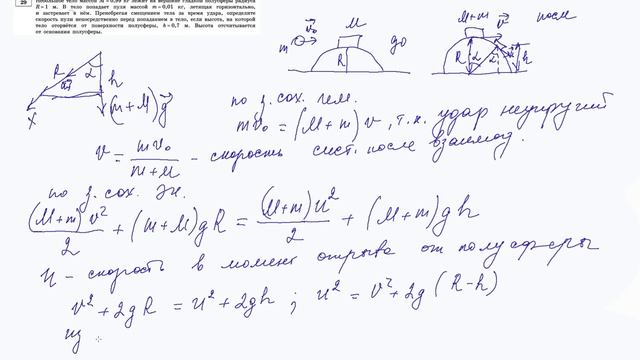 29
Небольшое тело массой M = 0,99 кг лежит на вершине гладкой полусферы радиуса
R = 1 м. В тело попадает пуля массой m = 0,01 кг, летящая горизонтально,
и застревает в нём. Пренебрегая смещением тела за время удара, определите
скорость пули непосредственно перед попаданием в тело, если высота, на которой
тело оторвётся от поверхности полусферы, h = 0,7 м. Высота отсчитывается
от основания полусферы.
m v⃗₀ M до R
после v⃗ R α h
R α h
x (m+M)g⃗
по з. сох. имп.
mv₀ = (M+m)v, т.к. удар неупругий
v = mv₀/(m+M) - скорость сист. после взаимод.
по з. сох. эн.
(M+m)v²/2 + (m+M)gR = (M+m)u²/2 + (M+m)gh
u - скорость в момент отрыва от полусферы
v² + 2gR = u² + 2gh ; u² = v² + 2g(R-h)
из